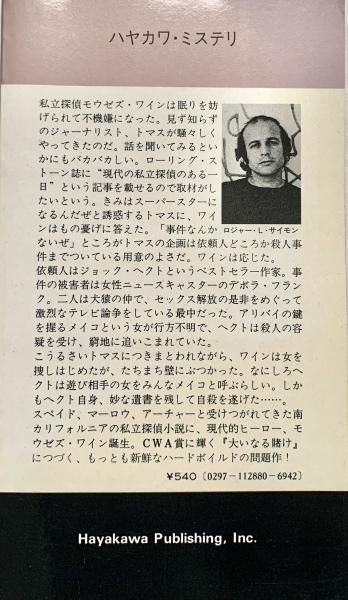 ハヤカワ・ミステリ
私立探偵モウゼズ・ワインは眠りを妨
げられて不機嫌になった。見ず知らず
のジャーナリスト、トマスが騒々しく
やってきたのだ。話を聞いてみるとい
かにもバカバカしい。ローリング・ス
トーン誌に“現代の私立探偵のある一
日”という記事を載せるので取材がし
たいという。きみはスーパースターに
なるんだぜと誘惑するトマスに、ワイ
ンはもの憂げに答えた。「事件なんか
ないぜ」ところがトマスの企画は依頼人どころか殺人事
件までついている用意のよさだ。ワインは応じた。
依頼人はジョック・ヘクトというベストセラー作家。事
件の被害者は女性ニュースキャスターのデボラ・フラン
ク。二人は犬猿の仲で、セックス解放の是非をめぐって
激烈なテレビ論争をしている最中だった。アリバイの鍵
を握るメイコという女が行方不明で、ヘクトは殺人の容
疑を受け、窮地に追いこまれていた。
こうるさいトマスにつきまとわれながら、ワインは女を
捜しはじめたが、たちまち壁にぶつかった。なにしろヘ
クトは遊び相手の女をみんなメイコと呼ぶらしい。しか
もヘクト自身、妙な遺書を残して自殺を遂げた……。
スペイド、マーロウ、アーチャーと受けつがれてきた南
カリフォルニアの私立探偵小説に、現代的ヒーロー、モ
ウゼズ・ワイン誕生。CWA賞に輝く『大いなる賭け』
につづく、もっとも新鮮なハードボイルドの問題作！
ロジャー・L・サイモン
¥540〔0297-112880-6942〕
Hayakawa Publishing, Inc.